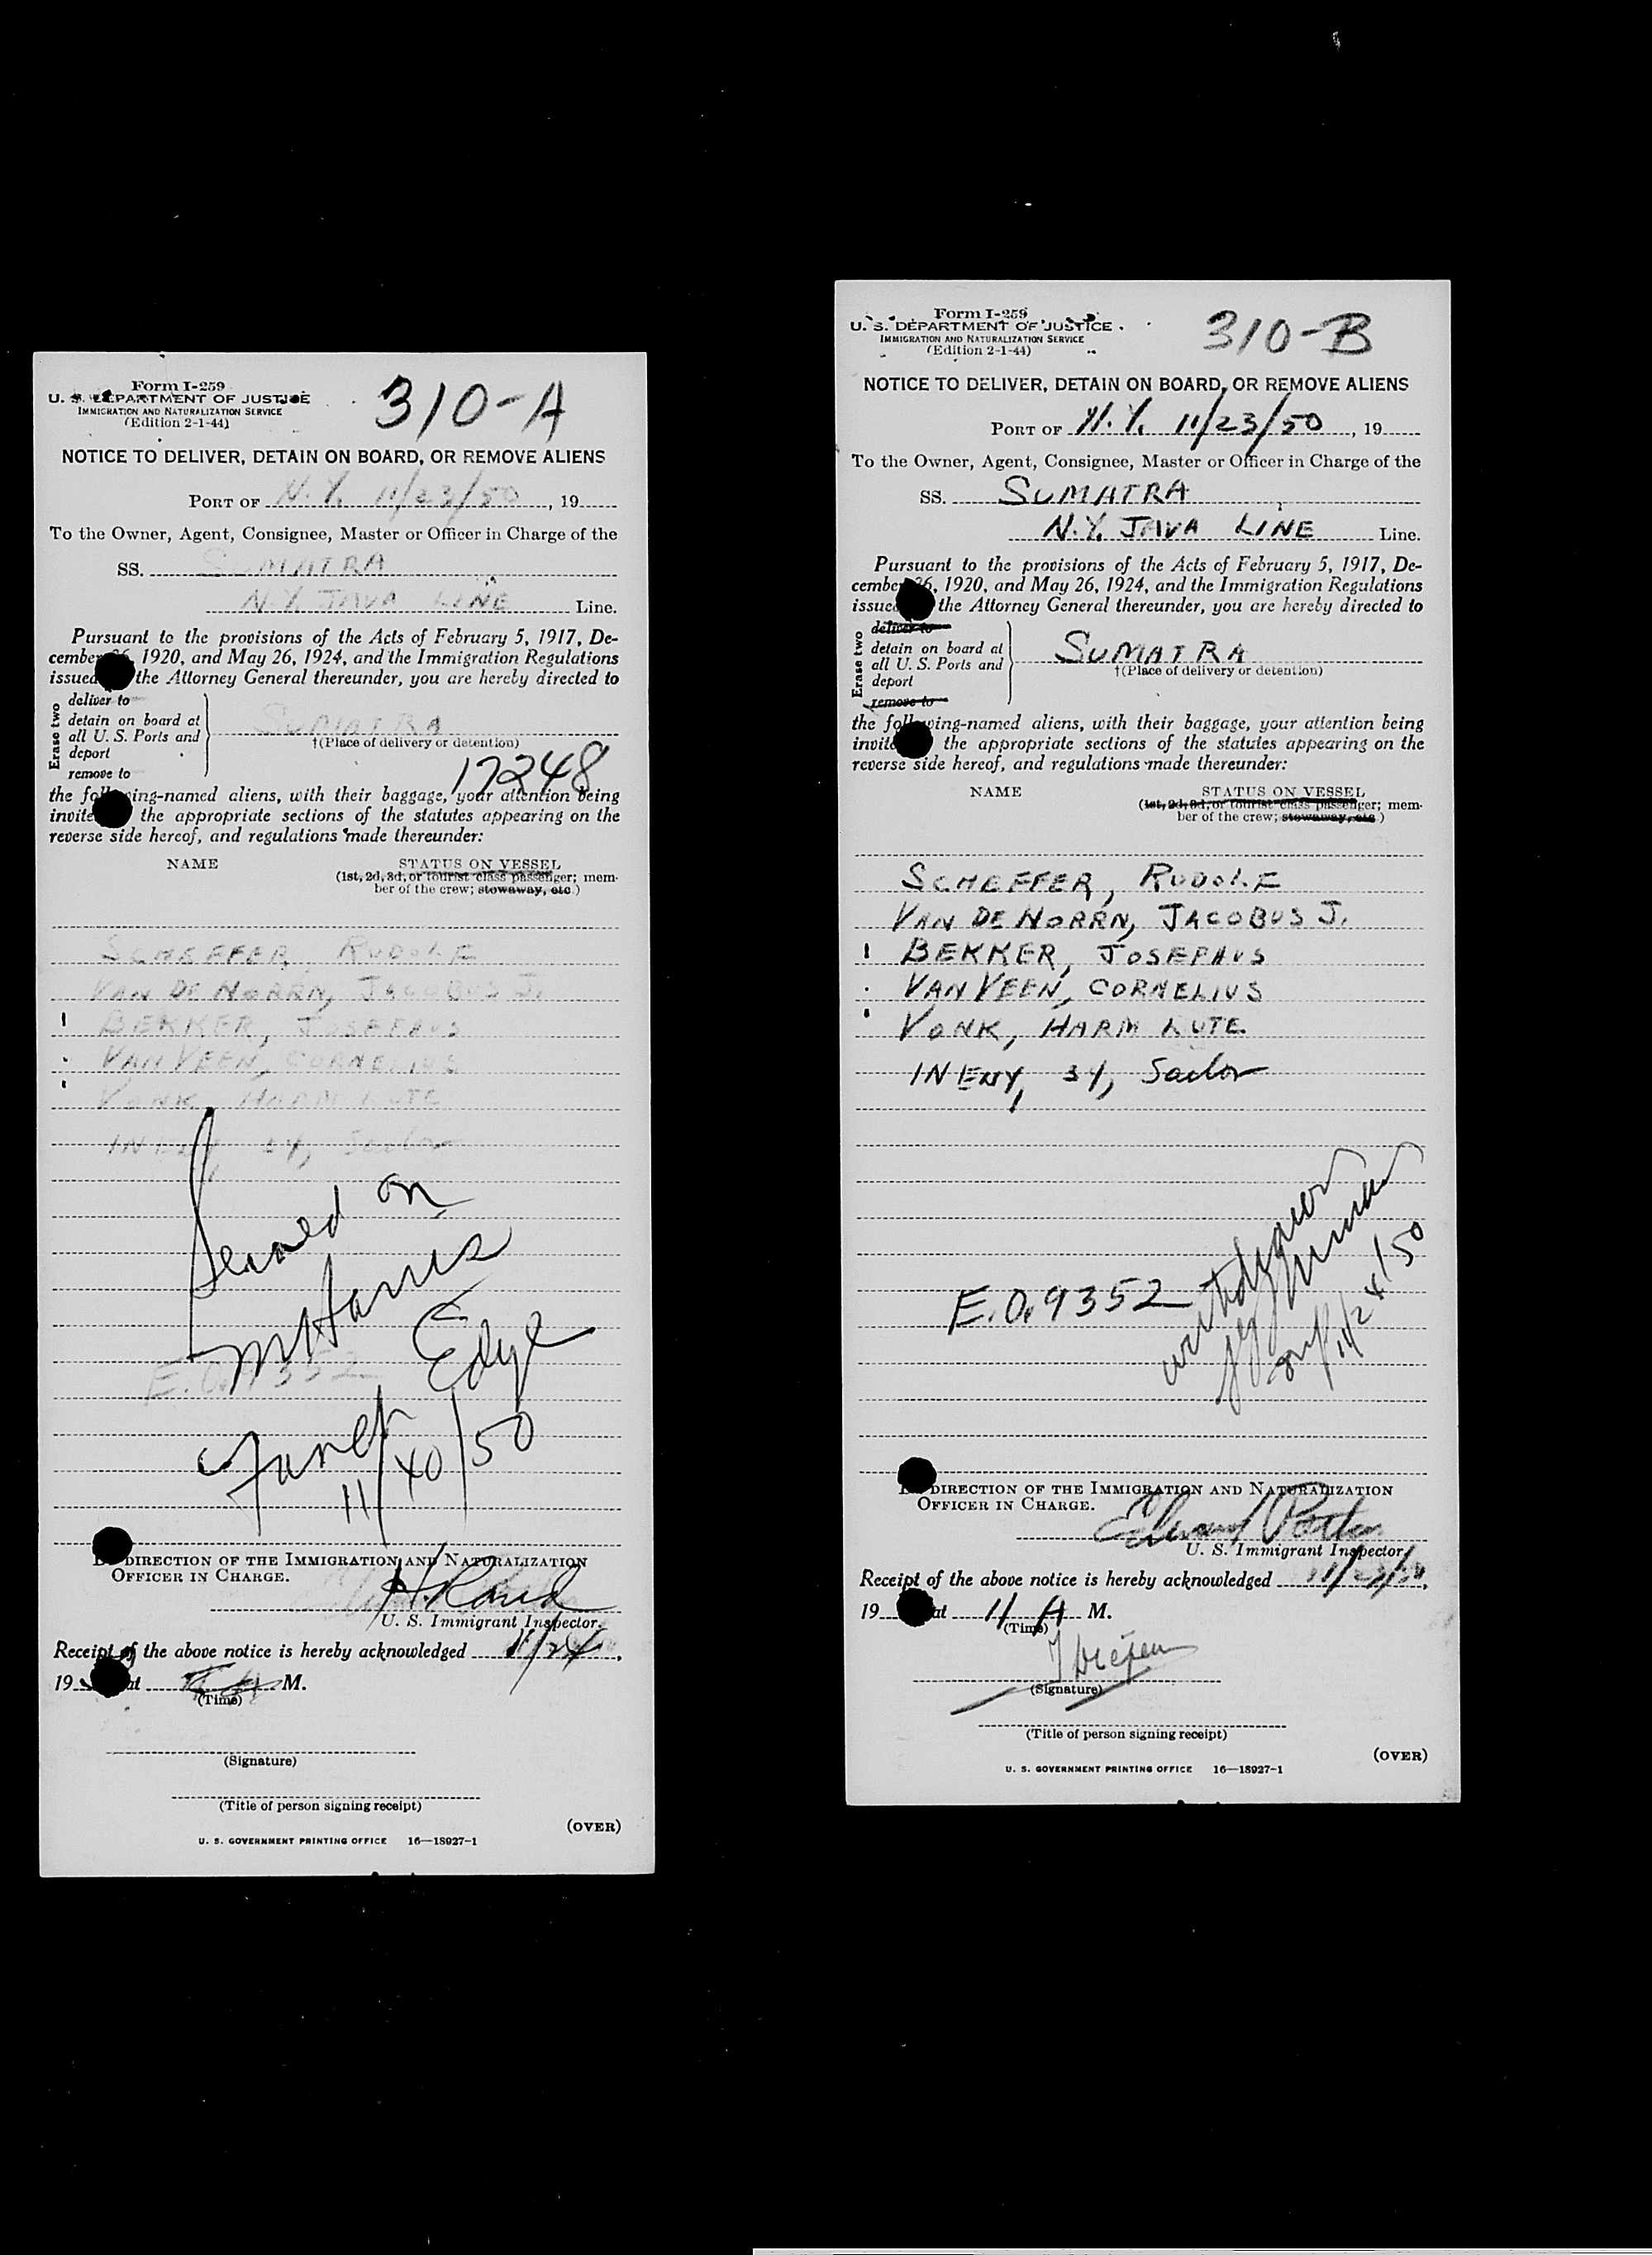 Form I-259
U. S. DEPARTMENT OF JUSTICE
IMMIGRATION AND NATURALIZATION SERVICE
(Edition 2-1-44)
310-A
NOTICE TO DELIVER, DETAIN ON BOARD, OR REMOVE ALIENS
PORT OF N.Y. 11/23/50, 19
To the Owner, Agent, Consignee, Master or Officer in Charge of the
SS. SUMATRA
N.Y. JAVA LINE Line.
Pursuant to the provisions of the Acts of February 5, 1917, De-
cember 26, 1920, and May 26, 1924, and the Immigration Regulations
issued the Attorney General thereunder, you are hereby directed to
Erase two
deliver to
detain on board at
all U. S. Ports and
deport
remove to
SUMATRA
†(Place of delivery or detention)
17248
the following-named aliens, with their baggage, your attention being
invite the appropriate sections of the statutes appearing on the
reverse side hereof, and regulations made thereunder:
NAME STATUS ON VESSEL
(1st, 2d, 3d, or tourist class passenger; mem-
ber of the crew; stowaway, etc.)
SCHEFFER, RUDOLF
VAN DE NORRN, JACOBUS J.
BEKKER, JOSEPHUS
VAN VEEN, CORNELIUS
VONK, HARM LUTE
INENY, 34, Sailor
Served on
M Harris
Edye
E.O. 9352
11/40/50
DIRECTION OF THE IMMIGRATION AND NATURALIZATION
OFFICER IN CHARGE.
U. S. Immigrant Inspector.
Receipt of the above notice is hereby acknowledged 11/24,
19 at M.
(Time)
(Signature)
(Title of person signing receipt)
(OVER)
U. S. GOVERNMENT PRINTING OFFICE 16—18927-1
Form I-259
U. S. DEPARTMENT OF JUSTICE
IMMIGRATION AND NATURALIZATION SERVICE
(Edition 2-1-44)
310-B
NOTICE TO DELIVER, DETAIN ON BOARD, OR REMOVE ALIENS
PORT OF N.Y. 11/23/50, 19
To the Owner, Agent, Consignee, Master or Officer in Charge of the
SS. SUMATRA
N.Y. JAVA LINE Line.
Pursuant to the provisions of the Acts of February 5, 1917, De-
cember 26, 1920, and May 26, 1924, and the Immigration Regulations
issued the Attorney General thereunder, you are hereby directed to
Erase two
deliver to
detain on board at
all U. S. Ports and
deport
remove to
SUMATRA
†(Place of delivery or detention)
the following-named aliens, with their baggage, your attention being
invite the appropriate sections of the statutes appearing on the
reverse side hereof, and regulations made thereunder:
NAME STATUS ON VESSEL
(1st, 2d, 3d, or tourist class passenger; mem-
ber of the crew; stowaway, etc.)
SCHEFFER, RUDOLF
VAN DE NORRN, JACOBUS J.
BEKKER, JOSEPHUS
VAN VEEN, CORNELIUS
VONK, HARM LUTE
INENY, 34, Sailor
E.O. 9352
withdrawn
11/24/50
DIRECTION OF THE IMMIGRATION AND NATURALIZATION
OFFICER IN CHARGE.
Edward Porter
U. S. Immigrant Inspector.
Receipt of the above notice is hereby acknowledged 11/23/50,
19 at 11 A M.
(Time)
(Signature)
(Title of person signing receipt)
(OVER)
U. S. GOVERNMENT PRINTING OFFICE 16—18927-1